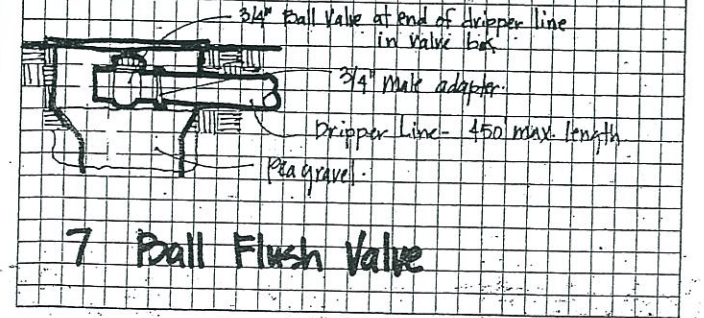 3/4" Ball Valve at end of dripper line
in valve box
3/4" male adapter.
Dripper Line - 450' max. length
Pea gravel.
7 Ball Flush Valve